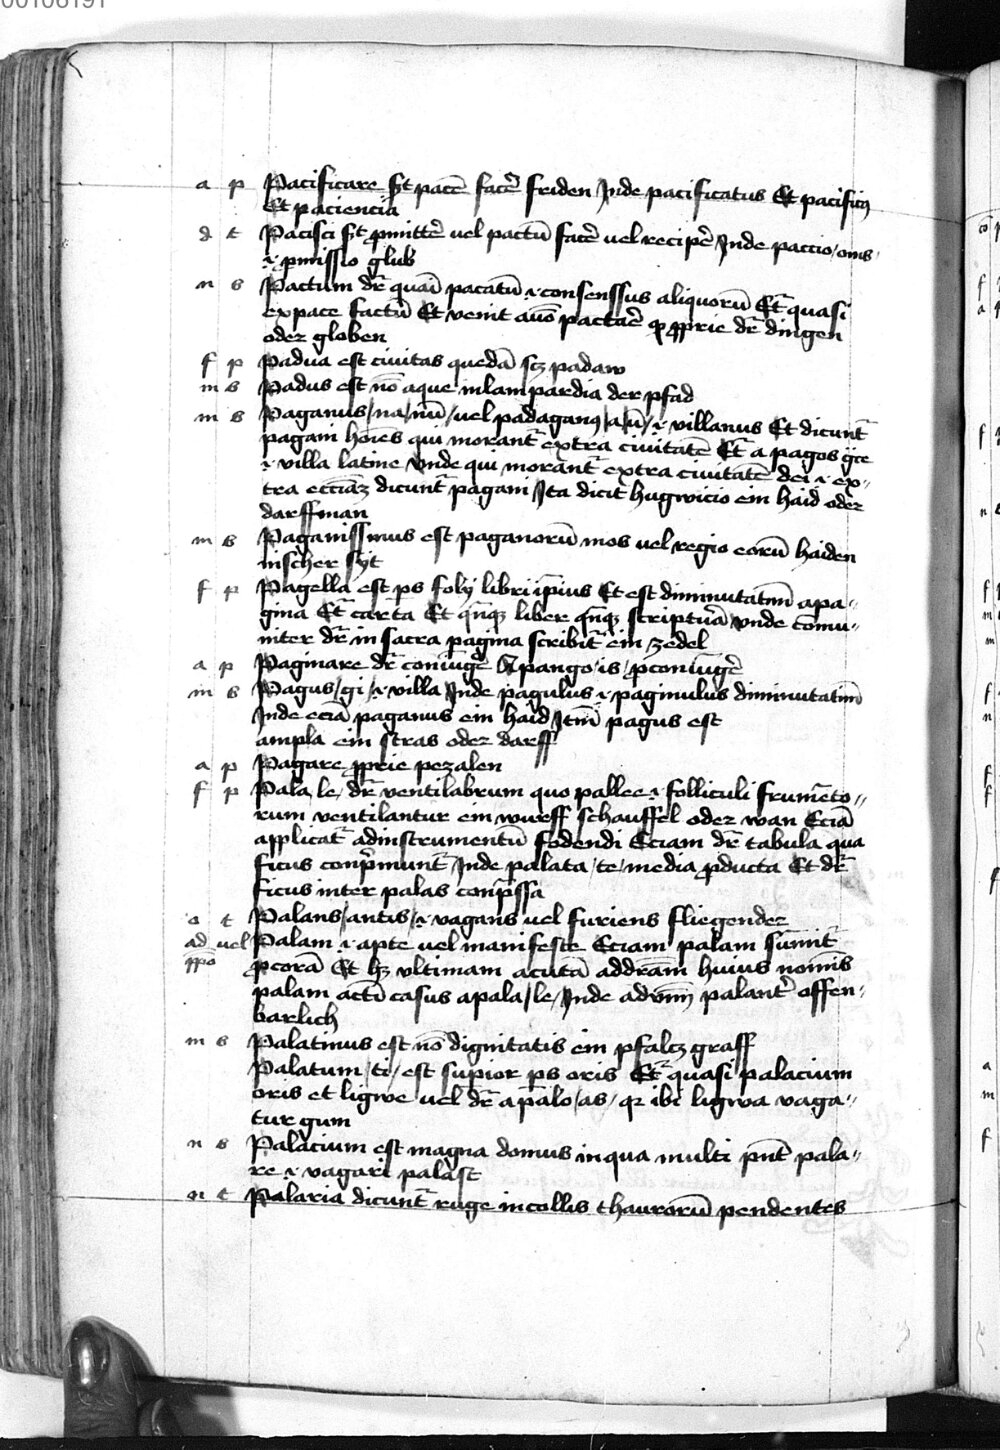 00106191
a p Pacificare est pacē facē friden Inde pacificatus Et pacificꝰ
Et paciencia
d t Pacisci est ꝓmittē vel pactū facē vel recipē Inde paccio/onis/
.i. ꝓmissio glub
n s Pactum dr̄ quasi pacatū .i. consenssus aliquorū Et̄ quasi
ex pace factū Et venit a pactaē ꝓprie dr̄ dingen
oder globen
f p Padua est civitas quedā scꝫ padaw
m s Padus est nō aque in lampardia der pfad
m s Paganus/na/nū/vel padaganꝰ/a/ū/.i. villanus Et dicunt̄
pagani hoīes qui morant̄ extra civitatē Et̄ a pagos gͤce
.i. villa latine Vnde qui morant̄ extra civitatē dei .i. ex„
tra ecciāꝫ dicunt̄ pagani Ita dicit hugwicio ein haid oder
darffman
m s Paganissimus est paganorū mos vel regio eorū haiden
nischer syt
f p Pagella est ꝑs folij libri ipīus Et est diminutatiuū a pa„
gina Et̄ carta Et qn̄qꝫ liber qn̄qꝫ scriptura vnde cōmu„
niter dr̄ in sacra pagina scribit̄ ein zedel
a p Paginare dr̄ coniūgē A pango/is/ꝓ coniūgē
m s Pagus/gi/.i. villa Inde pagulus .i. paginulus diminutatiuū
Inde eciā paganus ein haid Itm̄ pagus est
ampla ein stras oder darff
a p Pagare ꝓprie pezalen
f p Pala le/dr̄ ventilabrum quo pallee .i. folliculi frumēto„
rum ventilantur ein wurff schauffel oder wan Eciā
applicat̄ ad instrumentū fodendi Eciam dr̄ tabula qua
ficus conpͥmunt̄ Inde palata/te/media ꝓducta Et dr̄
ficus inter palas conpͥssa
o t Palans/antis/.i. vagans vel furiens fliegender
ad vel Palam .i. apte vel manifeste Eciam palam sumit̄
ppō ꝓ corā Et hꝫ vltimam acutā ad dr̄am huius nominis
palam acti casus a pala/le/Inde aduīm palant̄ offen„
barlich
m s Palatinus est nō dignitatis ein pfalcz graff
Palatum/ti/est supior ꝑs oris Et̄ quasi palacium
oris et ligwe vel dr̄ a palo/as/qꝛ ibi ligwa vaga„
tur gum
n s Palacium est magna domus in qua multi pn̄t pala„
re .i. vagari palast
n t Palaria dicunt̄ ruge in collis thaurorū pendentes